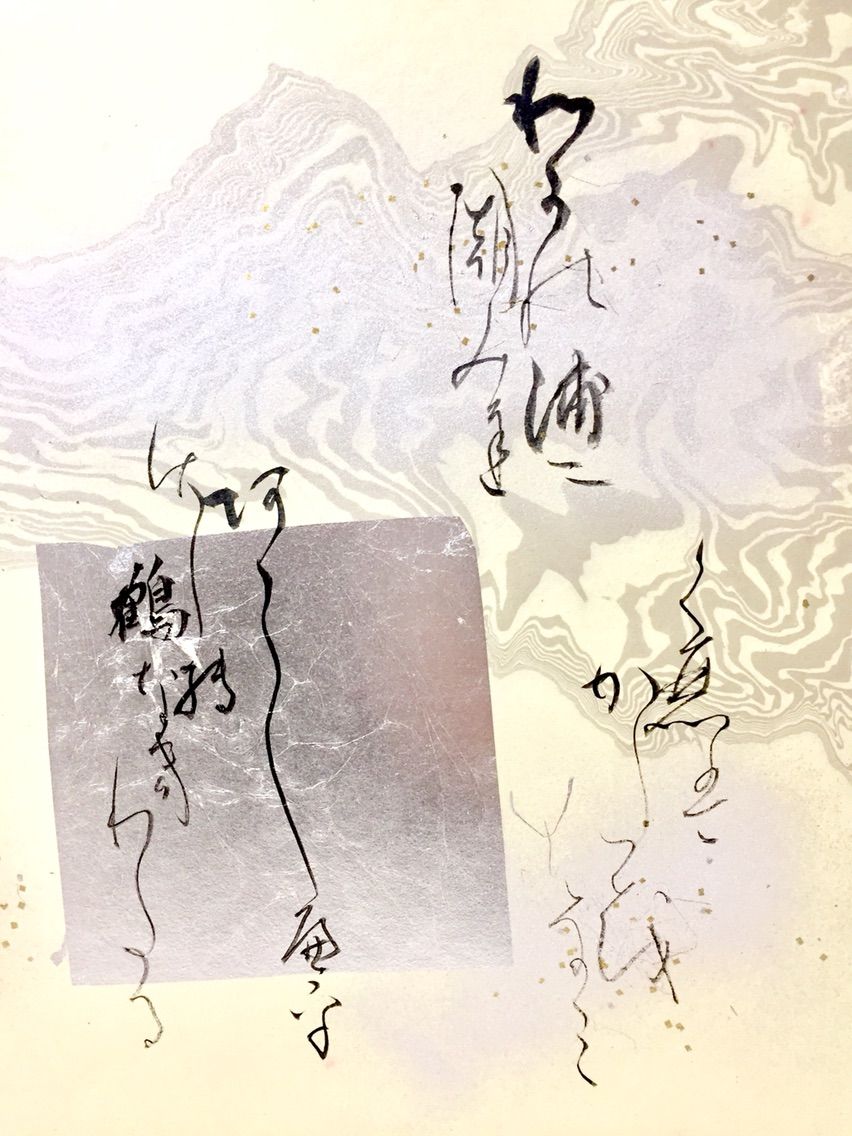 わかの浦二
潮みち
くれば
かたを
なみ
阿し邊乎
さして
鶴なき
わたる